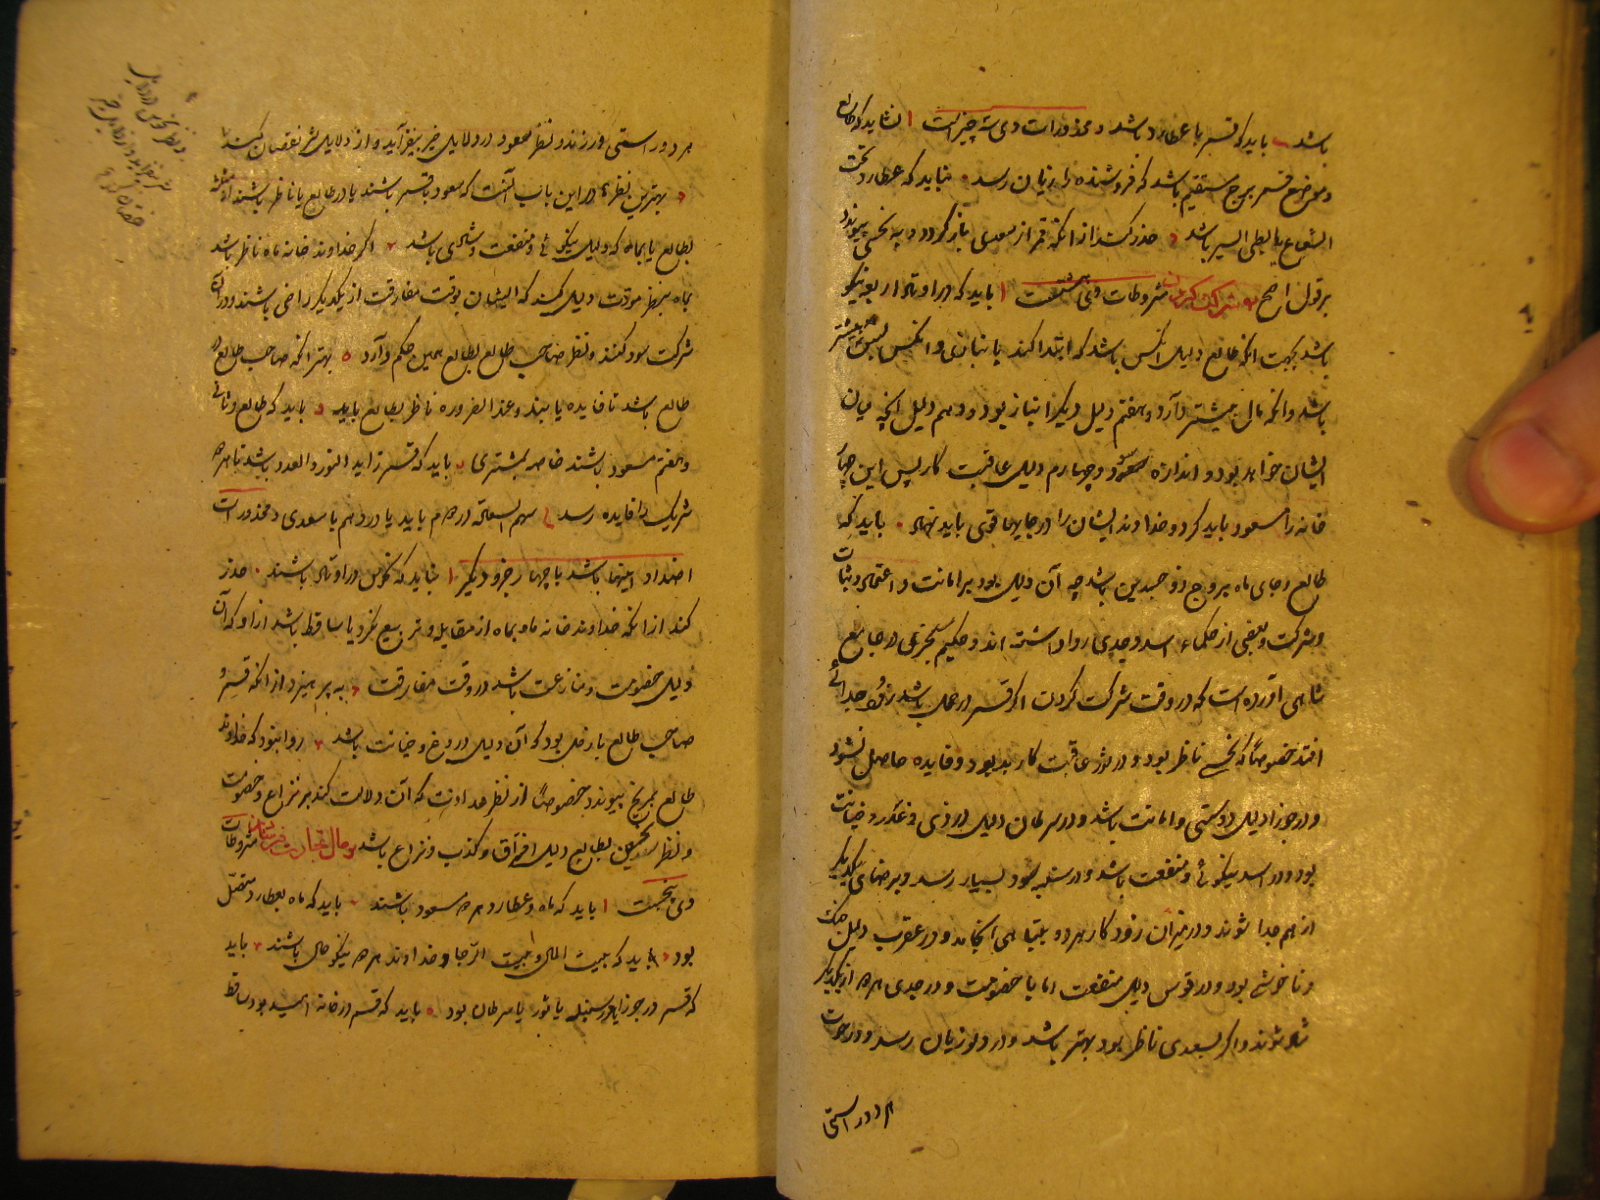 باشد باید که قمر با عطارد باشد و محذورات وی سه چیز است ۱ نشاید که طالع
و موضع قمر برج مستقیم باشد که فروشنده را زیان رسد نباید که عطارد تحت
الشعاع یا بطی السیر باشد حذر کند از انکه قمر از سعدی باز گردد و به نحسی پیوندد
بر قول اصح شرکت کردن مشروطات وی هشتست ۱ باید که در اوتاد اربعه نیکو
باشد بجهت انکه طالع دلیل انکس باشد که ابتدا کند با نبازی و انکس
باشد و انکه مال بیشتر دارد و هفتم دلیل دیگر انباز بود و دهم دلیل انچه میان
ایشان خواهد بود و اندازه و چهارم دلیل عاقبت کار پس این چهار
خانه را مسعود باید کرد و خداوند ایشان را در جایها قوی باید نهاد باید که
طالع و جای ماه بروج ذو جسدین باشد چه آن دلیل بود بر امانت و اعتماد و ثبات
و شرکت و بعضی از حکماء اسد و جدی روا داشته اند و حکیم سجزی در جامع
شاهی آورده است که در وقت شرکت کردن اگر قمر در حمل باشد زود جدائی
افتد خصوصا که نحسی ناظر بود و در ثور عاقبت کار بد بود و فایده حاصل نشود
و در جوزا دلیل دوستی و امانت باشد و در سرطان دلیل دزدی و غدر و خیانت
بود و در اسد نیکوئی و منفعت باشد و در سنبله سود بسیار رسد و برضای یکدیگر
از هم جدا شوند و در میزان زود کار هر دو بتباهی انجامد و در عقرب دلیل جنگ
و ناخوشی بود و در قوس دلیل منفعت اما با خصومت و در جدی هر دو از یکدیگر
شاد شوند و اگر بسعدی ناظر بود بهتر باشد و در دلو زیان رسد و در حوت
هر دو راستی
هر دو راستی ورزند و نظر سعود در دلایل خیر بیفزاید و از دلایل شر نقصان کند
بهترین نظرها در این باب آنست که سعود با قمر باشند یا در طالع یا ناظر باشند
بطالع یا بماه که دلیل نیکوئی و منفعت و شادی باشد اگر خداوند خانه ماه ناظر باشد
بماه بنظر مودت دلیل کند که ایشان بوقت مفارقت از یکدیگر راضی باشند و در آن
شرکت سود کنند و نظر صاحب طالع بطالع همین حکم دارد ۵ بهتر انکه صاحب طالع در
طالع باشد تا فایده یابند و عند الضروره ناظر بطالع باید باید که طالع و ثانی
و هفتم مسعود باشند خاصه بمشتری باید که قمر زاید النور و العدد باشد تا هر دو
شریک را فایده رسد سهم السعاده در دهم باید یا در دهم با سعدی و محذورات
اضداد اینها باشد با چهار جزو دیگر ۱ نباید که نحوس در اوتاد باشند حذر
کند از انکه خداوند خانه ماه بماه از مقابله و تربیع نگرد یا ساقط باشد از او که آن
دلیل خصومت و منازعت باشد در وقت مفارقت بپرهیزد از انکه قمر و
صاحب طالع بارض بود که آن دلیل دروغ و خیانت باشد روا نبود که خداوند
طالع بمریخ پیوندد خصوصا از نظر عداوت که آن دلالت کند بر نزاع و خصومت
و نظر نحسین بطالع دلیل افتراق و کذب و نزاع باشد و مال بتجارت فرستادن مشروطات
وی پنجست ۱ باید که ماه و عطارد هر دو مسعود باشند باید که ماه بعطارد متصل
بود باید که بیت المال و بیت الرجا و خداوند هر دو نیکو حال باشند باید
که قمر در جوزا یا در سنبله یا ثور یا سرطان بود ۵ باید که قمر در خانه امید بود ساقط